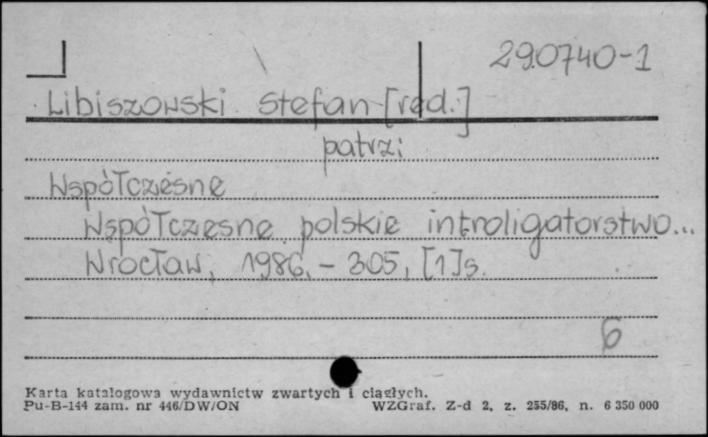 290740-1
Libiszowski Stefan [red.]
patrz:
Współczesne
Współczesne polskie introligatorstwo...
Wrocław, 1986. - 305, [1] s.
6
Karta katalogowa wydawnictw zwartych i ciągłych.
Pu-B-144 zam. nr 446/DW/ON WZGraf. Z-d 2, z. 255/86, n. 6 350 000